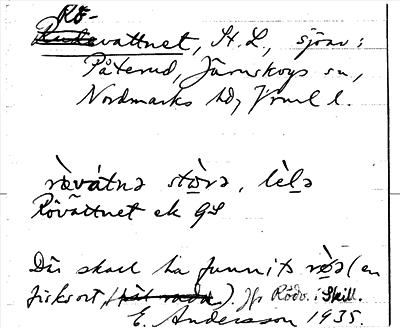 Rö-
vattnet, St. L., sjöar:
Påterud, Järnskogs sn,
Nordmarks hd, Vrml l.
rövátnə stórə, lèlə
Rövattnet ek GS
Där skall ha funnits rö̀ə (en
fisksort, ). Jfr Rödv. i Skill.
E. Andersson 1935